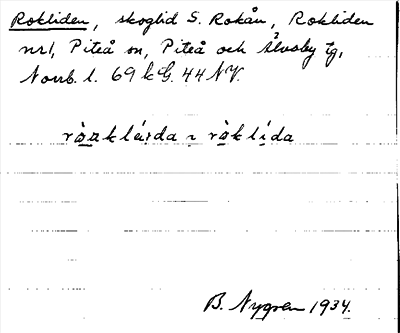 Rokliden, skoglid S. Rokån, Rokliden
nr1, Piteå sn, Piteå och Älvsby tg,
Norrb. l. 69 k G. 44 NV.
B. Nygren 1934.